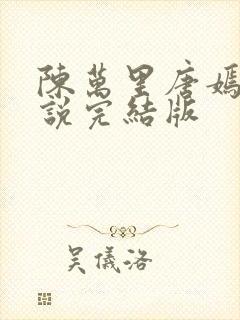 陳萬里唐嫣
說完結版
吳儀洛